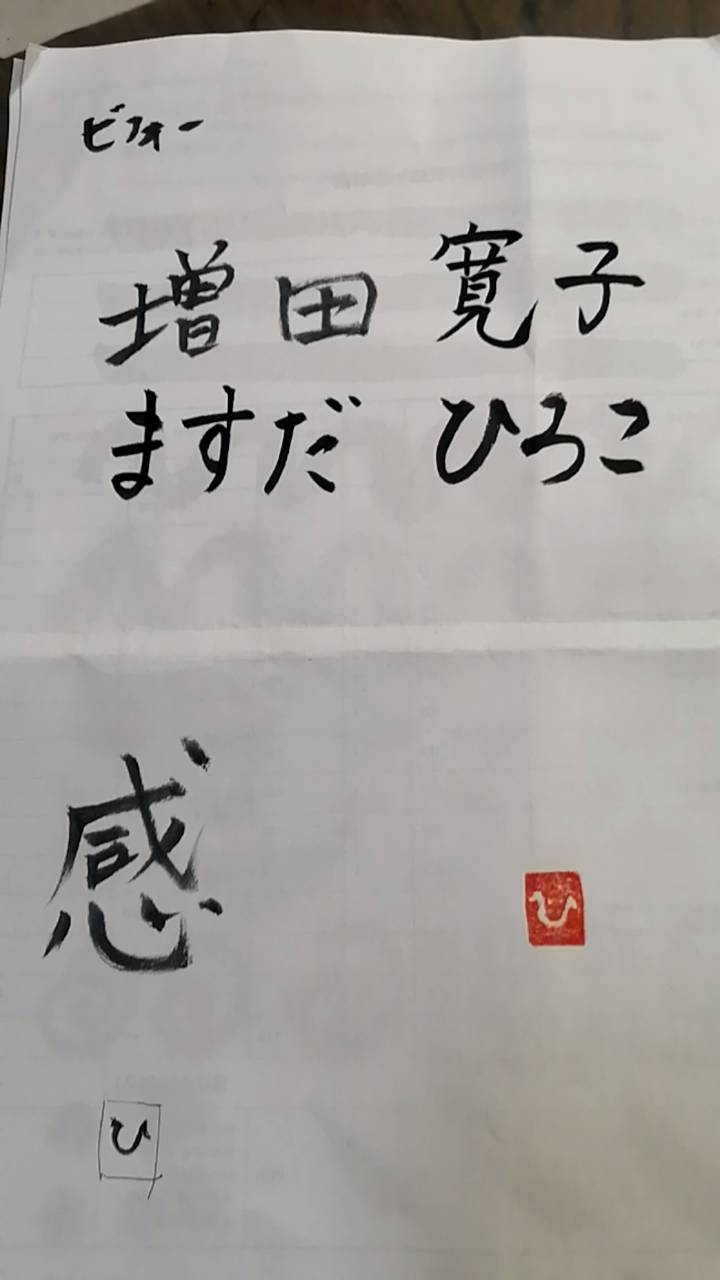 ビフォー
増田 寛子
ますだ ひろこ
感
ひ
ひ